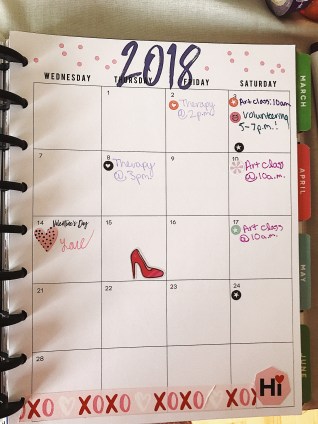 2018
WEDNESDAY THURSDAY FRIDAY SATURDAY
1 2 3
Therapy
@ 2pm
Art class: 10am
Volunteering
5-7p.m.!
7 8 9 10
Therapy
@ 3pm
Art Class
@ 10a.m.
14 Valentine's Day 15 16 17
Art Class
@ 10a.m.
21 22 23 24
28
XOXO XOXO XOXO XOXO
Hi
MARCH
APRIL
MAY
JUNE